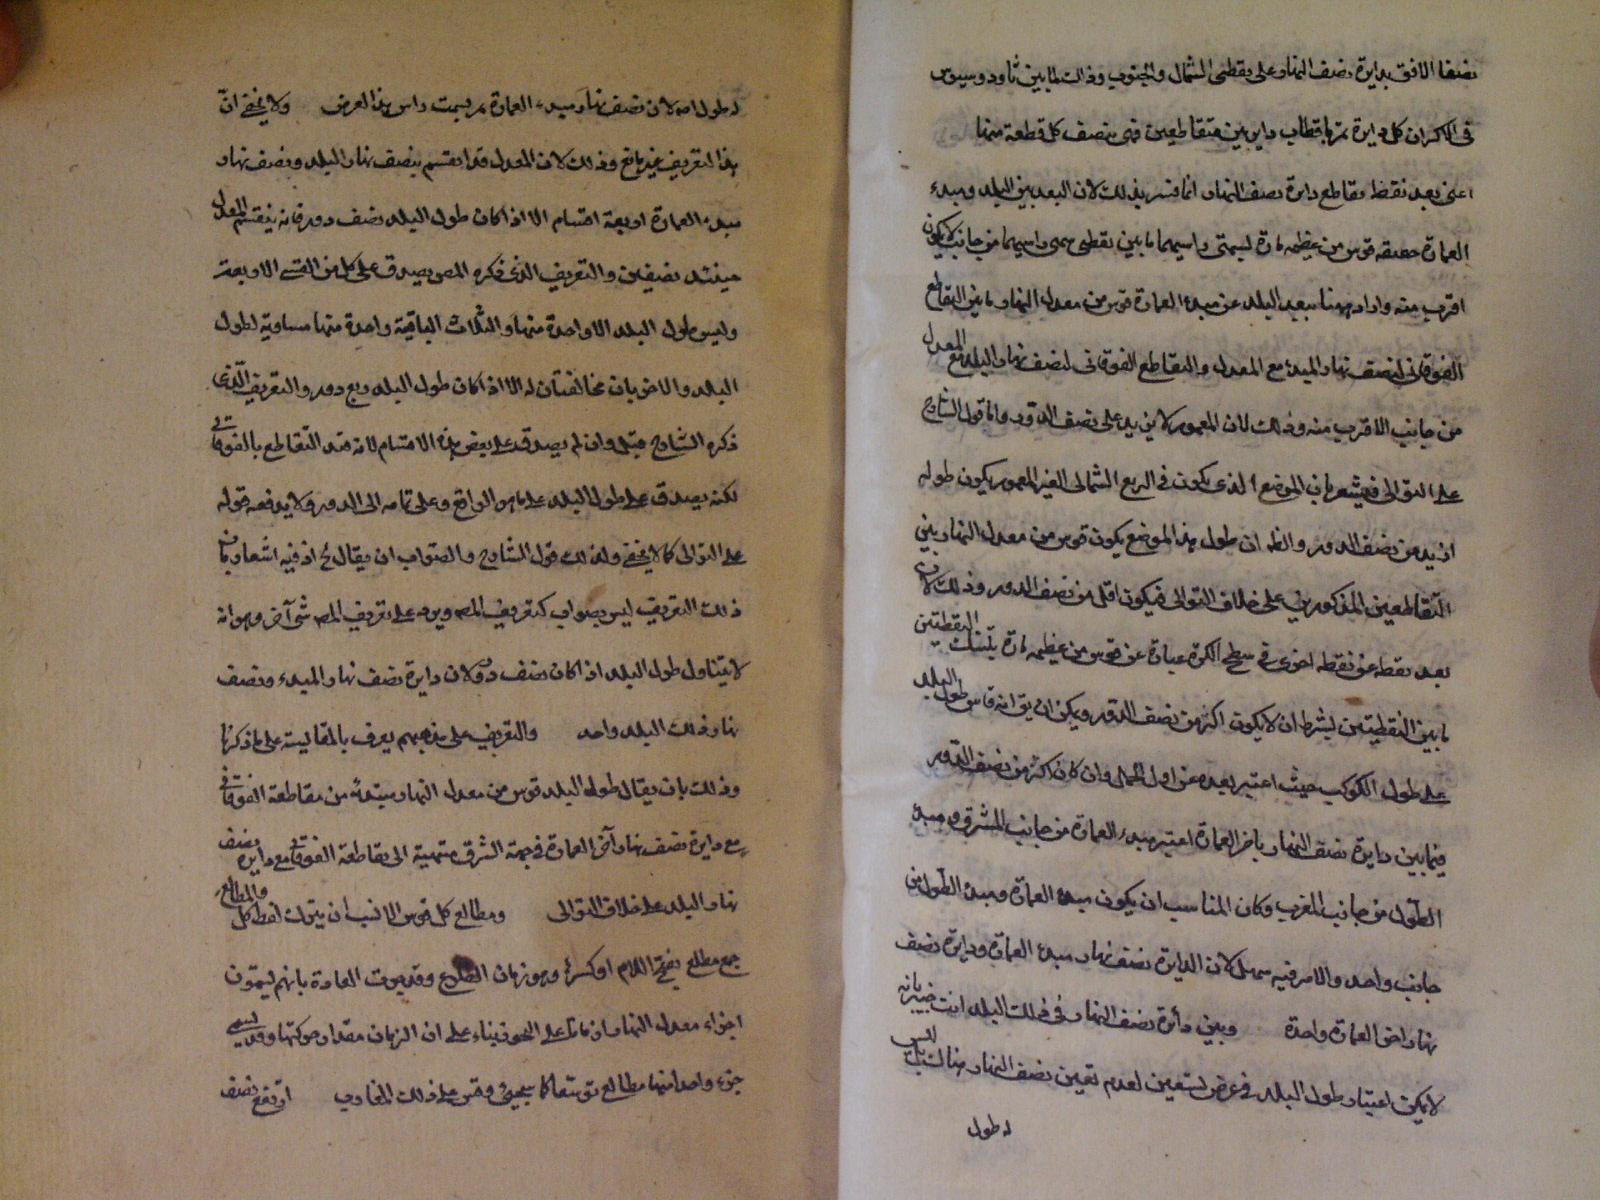 نصفا الافق بدايرة نصف النهار على نقطتى الشمال والجنوب وذلك لما بين ثاودوسيوس
فى الاكر ان كل دايرة تمر باقطاب دايرتين متقاطعتين فهى تنصف كل قطعة منها
اعنى بعد نقطة تقاطع دايرة نصف النهار انما فسر بذلك لان البعد بين البلد ومبدء
العمارة حقيقه قوس من عظيمه مارة بسمتى راسيهما ما بين نقطتى سمتى راسيهما من جانب لا يكون
اقرب منه واراد ههنا ببعد البلد عن مبدء العمارة قوس من معدل النهار ما بين التقاطع
الفوقانى لنصف نهار المبدء مع المعدل والتقاطع الفوقانى لنصف نهار البلد مع المعدل
من جانب الاقرب منه وذلك لان المعمور لا يزيد على نصف الدور واما قول الشارح
على التوالى فيشعر بان الموضع الذى يكون فى الربع الشمالى الغير المعمور يكون طوله
ازيد من نصف الدور والظ ان طول هذا الموضع يكون قوس من معدل النهار بين
التقاطعين المذكورين على خلاف التوالى فيكون اقل من نصف الدور وذلك لان
بعد نقطه عن نقطه اخرى فى سطح الكرة عبارة عن قوس من عظيمه مارة بتينك النقطتين
ما بين النقطتين بشرط ان لا يكون اكثر من نصف الدور ويمكن ان يق انه قاس طول البلد
على طول الكوكب حيث اعتبر بعده عن اول الحمل وان كان اكثر من نصف الدور
فيما بين دايرة نصف النهار باخر العمارة اعتبر مبدء العمارة من جانب المشرق ومبدء
الطول من جانب المغرب وكان المناسب ان يكون مبدء العمارة ومبدء الطول من
جانب واحد والامر فيه سهل لان الدايرة نصف نهار مبدء العمارة ودايرة نصف
نهار اخر العمارة واحدة وبين دائرة نصف النهار فى ذلك البلد انت خبير بانه
لا يمكن اعتبار طول البلد فى عرض تسعين لعدم تعين نصف النهار هناك بل ليس
له طول
له طول اصلا لان نصف نهار مبدء العمارة يمر بسمت راس هذا العرض ولا يخفى ان
هذا التعريف غير مانع وذلك لان المعدل قد انقسم بنصف نهار البلد ونصف نهار
مبدء العمارة اربعة اقسام الا اذا كان طول البلد نصف دور فانه ينقسم المعدل
حينئذ نصفين والتعريف الذى ذكره المص يصدق على كل من القسى الاربعة
وليس طول البلد الا واحدة منها والثلاث الباقية واحدة منها مساوية لطول
البلد والاخريان مخالفتان له الا اذا كان طول البلد ربع دور والتعريف الذى
ذكره الشارح قبيل وان لم يصدق على بعض هذه الاقسام لانه قيد التقاطع بالفوقانى
لكنه يصدق على طول البلد على ما هو الواقع وعلى تمامه الى الدور ولا يدفعه قوله
على التوالى كما لا يخفى ولذلك قول الشارح والصواب ان يقال لخ اذ فيه اشعار بان
ذلك التعريف ليس بصواب كتعريف المص ويرد على تعريف المص شى آخر وهو انه
لا يتناول طول البلد اذا كان نصف دور لان دايرة نصف نهار المبدء ونصف
نهار ذلك البلد واحد والتعريف على مذهبهم يعرف بالمقايسة على ما ذكرنا
وذلك بان يقال طول البلد قوس من معدل النهار مبتدئه من مقاطعة الفوقانى
مع دايرة نصف نهار آخر العمارة فى جهة الشرق منتهية الى تقاطعة الفوقانى مع دائرة نصف
نهار البلد على خلاف التوالى ومطالع كل قوس الانسب ان يترك لفظ كل والمطالع
جمع مطلع بفتح اللام او كسره وهو زمان الطلوع وقد جرت العادة بانهم يسمون
اجزاء معدل النهار ازمانا على التجوز بناء على ان الزمان مقدار حركتها وقد يسمى
جزء واحد منها مطالع توسعا كما سيجيئ وقس على ذلك المغارب ارتفع نصف